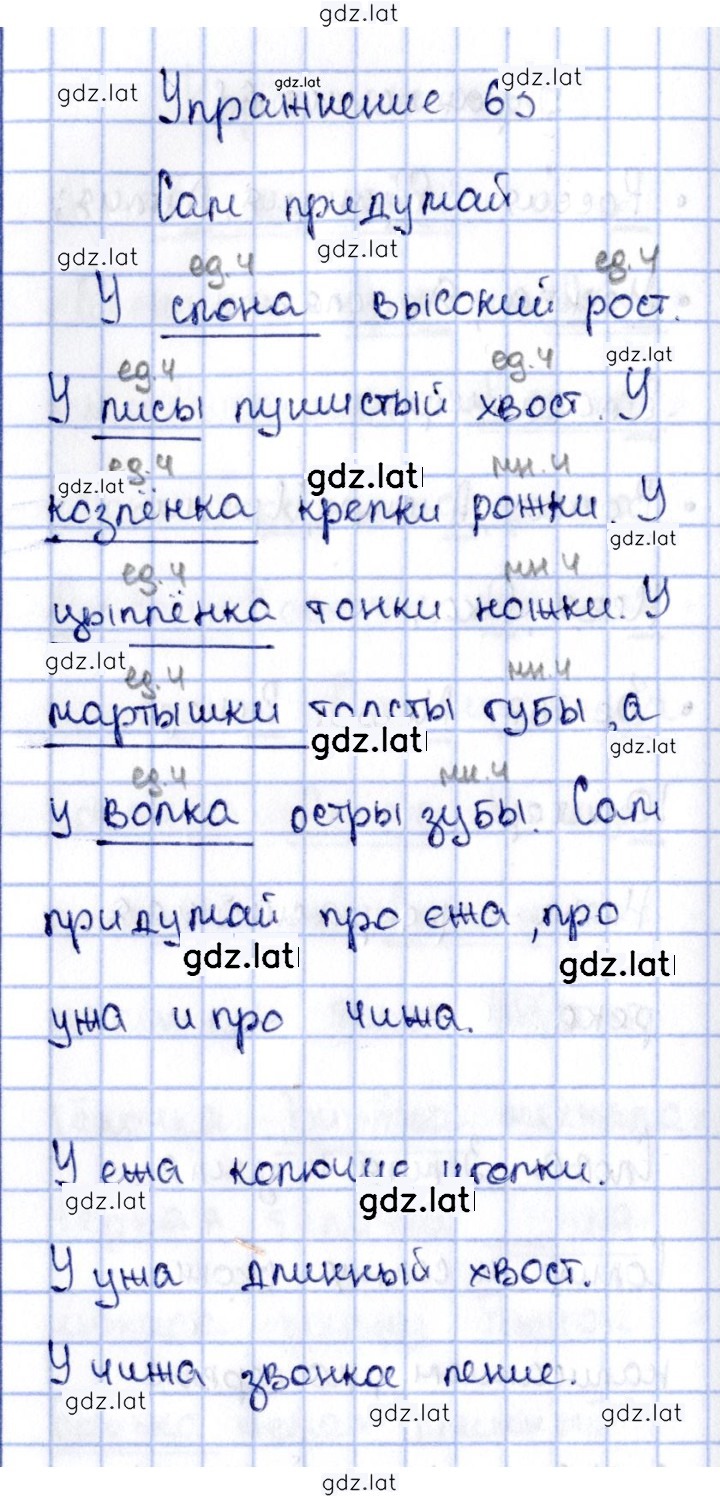 gdz.lat
gdz.lat gdz.lat gdz.lat
Упражнение 63
Сам придумай
gdz.lat ед.ч gdz.lat ед.ч
У слона высокий рост.
ед.ч ед.ч gdz.lat
У лисы пушистый хвост. У
gdz.lat ед.ч gdz.lat мн.ч
козлёнка крепки рожки. У
gdz.lat
ед.ч мн.ч
цыплёнка тонки ножки. У
gdz.lat ед.ч мн.ч
мартышки толсты губы, а
gdz.lat gdz.lat
ед.ч мн.ч
у волка остры зубы. Сам
придумай про ежа, про
gdz.lat gdz.lat
ужа и про чижа.
У ежа колючие иголки.
gdz.lat gdz.lat gdz.lat
У ужа длинный хвост.
У чижа звонкое пение.
gdz.lat gdz.lat gdz.lat
gdz.lat